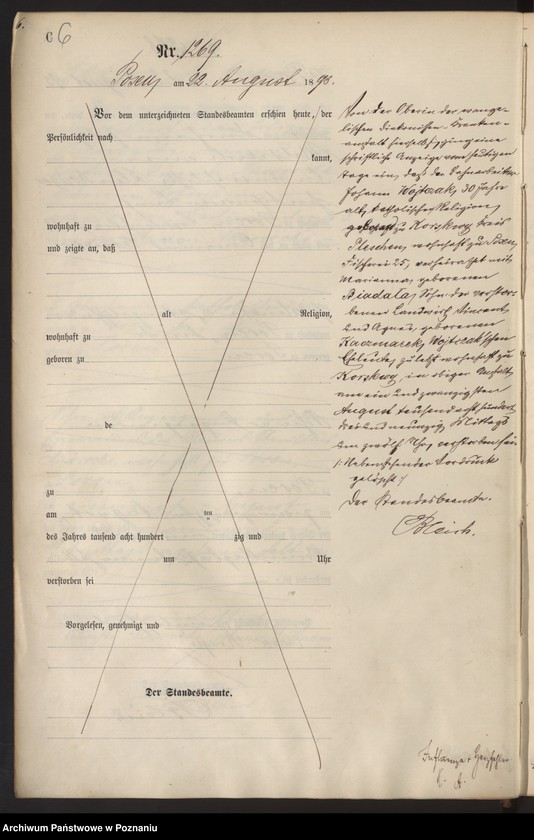 6.
C 6
Nr. 1269.
Posen am 22. August 1893.
Vor dem unterzeichneten Standesbeamten erschien heute, der
Persönlichkeit nach
kannt,
wohnhaft zu
und zeigte an, daß
alt Religion,
wohnhaft zu
geboren zu
de
zu
am ten
des Jahres tausend acht hundert zig und
um Uhr
verstorben sei
Vorgelesen, genehmigt und
Der Standesbeamte.
Von der Oberin der evange-
lischen Diakonissen-Kranken-
anstalt hierselbst ging eine
schriftliche Anzeige vom heutigen
Tage ein, daß der Bahnarbeiter
Johann Wojtczak, 30 Jahre
alt, katholischer Religion,
geboren zu Korzkwy Kreis
Pleschen, wohnhaft zu Posen,
Fischerei 25, verheirathet mit
Marianna, geborenen
Biadała, Sohn der verstor-
benen Landwirth Vincent
und Agnes, geborenen
Kaczmarek, Wojtczak'schen
Eheleute, zuletzt wohnhaft zu
Korzkwy, in obiger Anstalt
am ein und zwanzigsten
August tausend acht hundert
drei und neunzig, Mittags
um zwölf Uhr, verstorben sei.
/: Nebenstehender Vordruck
gelöscht :/
Der Standesbeamte.
Bleich.
Archiwum Państwowe w Poznaniu